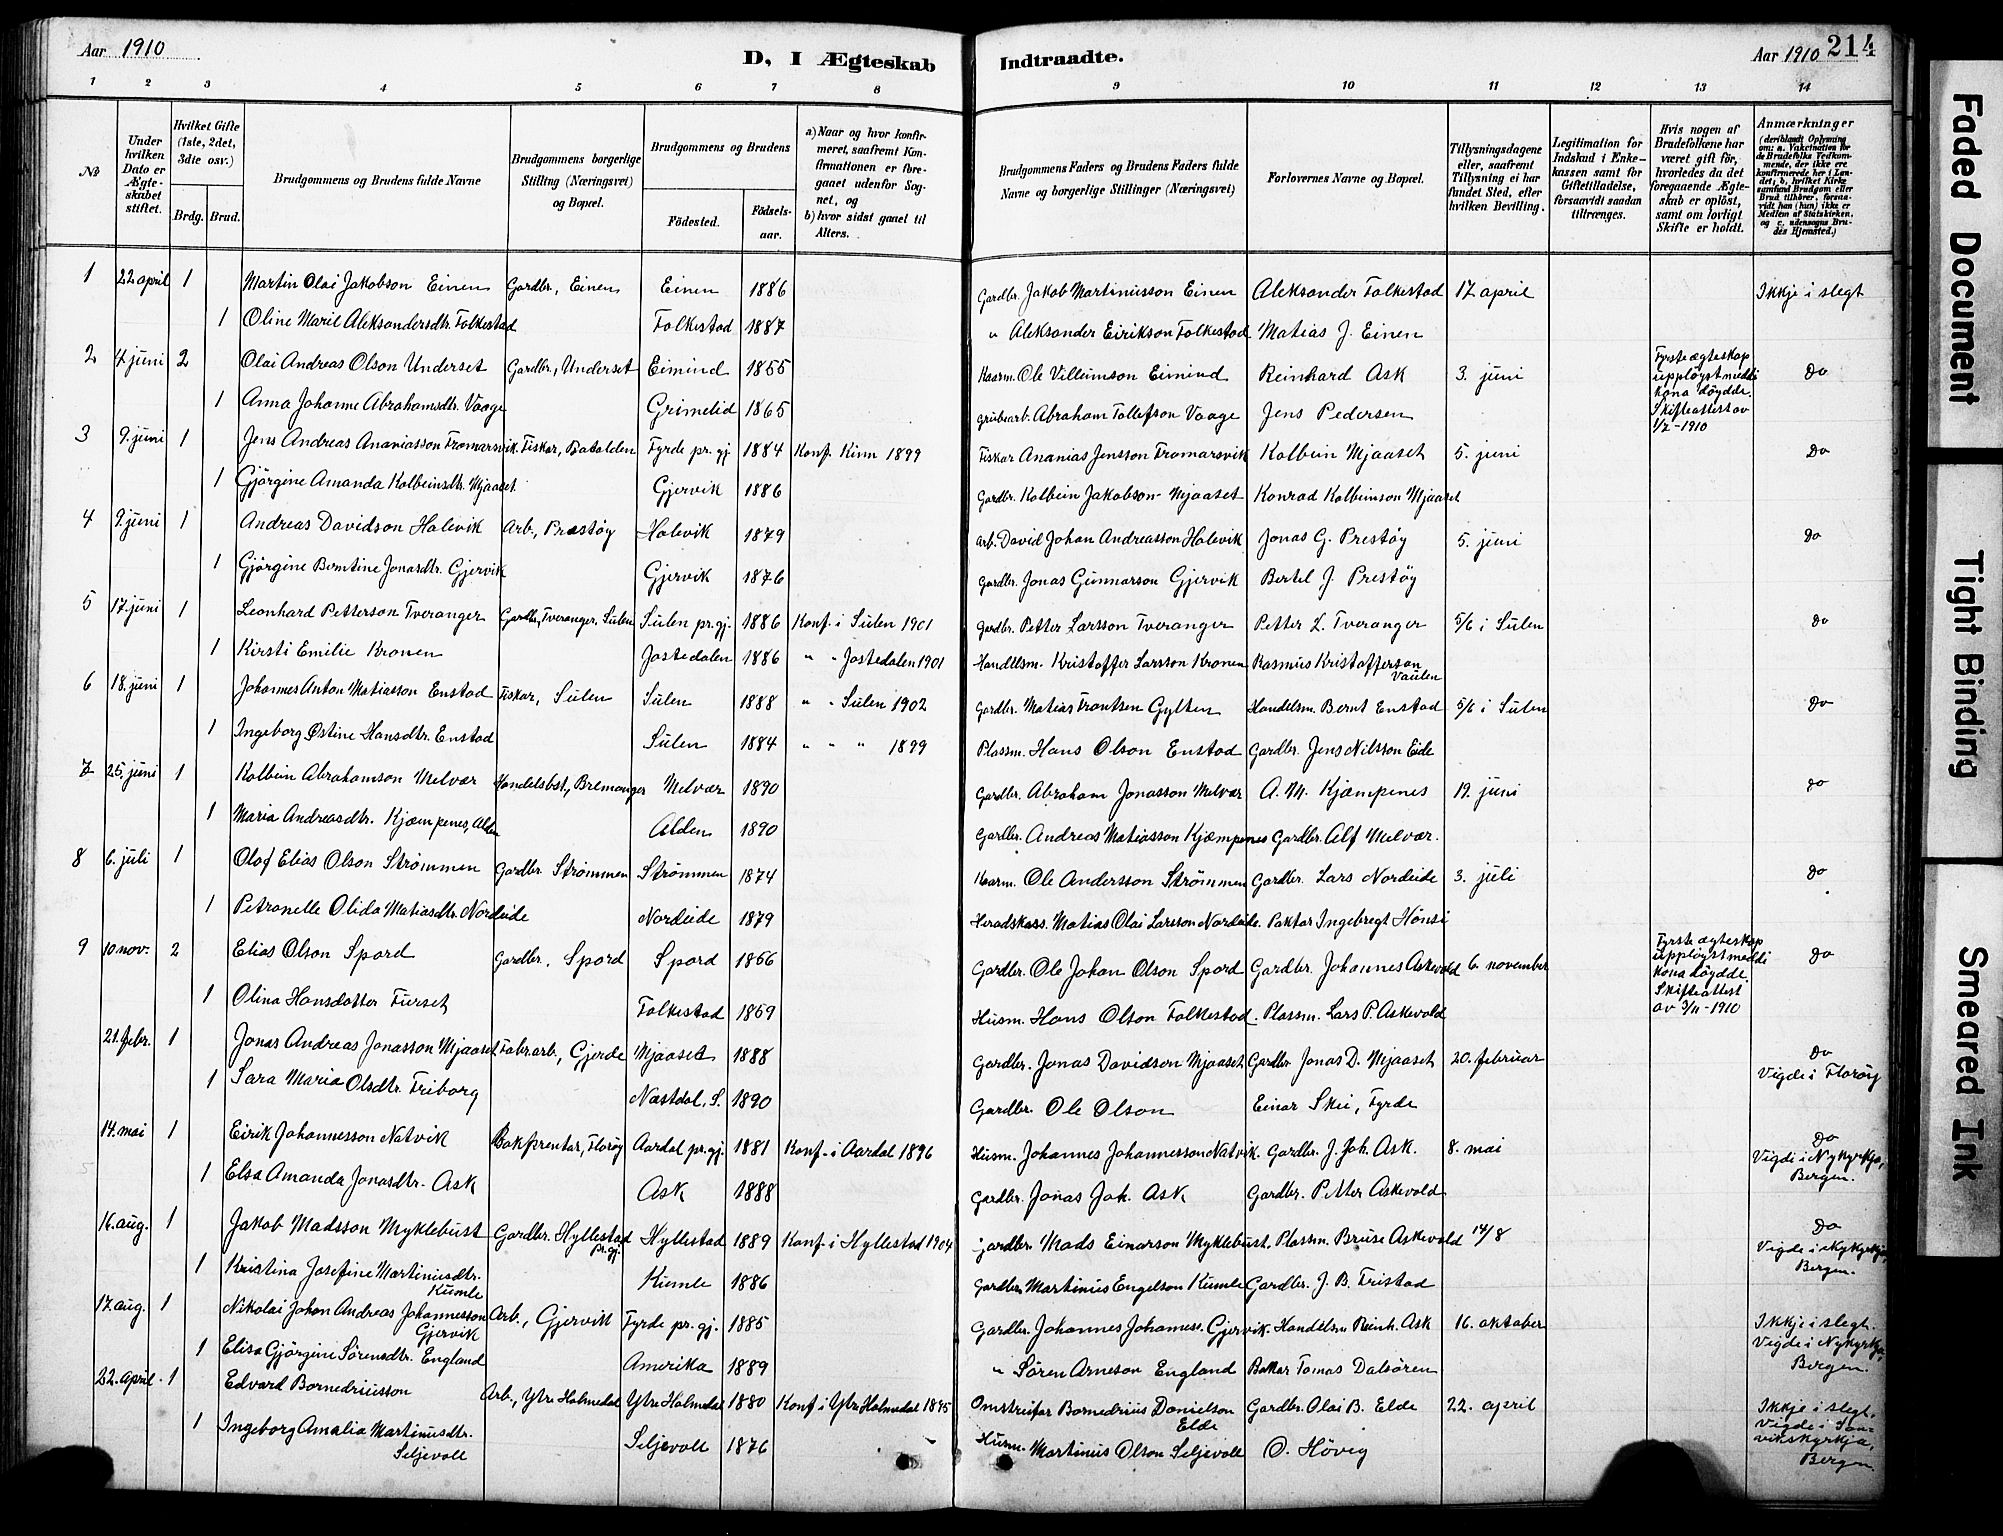 Aar 1910
D, I Ægteskab Indtraadte.
Aar 1910 214
1 2 3 4 5 6 7 8 9 10 11 12 13 14
No
Under hvilken Dato er Ægteskabet stiftet.
Hvilket Gifte (1ste, 2det, 3die osv.)
Brdg. Brud.
Brudgommens og Brudens fulde Navne
Brudgommens borgerlige Stilling (Næringsvei) og Bopæl.
Brudgommens og Brudens
Födested. Födselsaar.
a) Naar og hvor konfirmeret, saafremt Konfirmationen er foregaaet udenfor Sognet, og
b) hvor sidst gaaet til Alters.
Brudgommens Faders og Brudens Faders fulde Navne og borgerlige Stillinger (Næringsvei)
Forlovernes Navne og Bopæl.
Tillysningsdagene eller, saafremt Tillysning ei har fundet Sted, efter hvilken Bevilling.
Legitimation for Indskud i Enkekassen samt for Giftetilladelse, forsaavidt saadan tiltrænges.
Hvis nogen af Brudefolkene har været gift för, hvorledes da det foregaaende Ægteskab er oplöst, samt om lovligt Skifte er holdt.
Anmærkninger (deriblandt Oplysning om: a. Vakcination for de Brudefolks Vedkommende, der ikke ere konfirmerede her i Landet, b. hvilket Kirkesamfund Brudgom eller Brud tilhörer, forsaavidt han (hun) ikke er Medlem af Statskirken, og c. udensogns Brudes Hjemsted.)
1 22 april 1 Martin Olai Jakobson Einen Gardbr., Einen Einen 1886 Gardbr. Jakob Martinusson Einen Aleksander Folkestad 17 april Ikkje i slegt
1 Oline Maril Aleksandersdtr. Folkestad Folkestad 1887 " Aleksander Eirikson Folkestad Matias J. Einen
2 4 juni 2 Olai Andreas Olson Underset Gardbr., Underset Eimind 1855 Kaarm. Ole Villumson Eimind Reinhard Ask 3. juni Fyrste ægteskap uppløyst medti kona döydde. Skifteattest av 1/2-1910 Do
1 Anna Johanne Abrahamsdtr. Vaage Grimelid 1865 grubearb. Abraham Tollefson Vaage Jens Pedersen
3 9. juni 1 Jens Andreas Ananiasson Tromarsvik Fiskar, Batalden Fyrde pr.gj. 1884 Konf. Kinn 1899 Fiskar Ananias Jensson Tromarsvik Kolbein Mjaaset 5. juni Do
1 Gjörgine Amanda Kolbeinsdtr. Mjaaset Gjervik 1886 Gardbr. Kolbein Jakobson Mjaaset Konrad Kolbeinson Mjaaset
4 9. juni 1 Andreas Davidson Halevik Arb., Præstøy Halevik 1879 Arb. David Johan Andreasson Halevik Jonas G. Prestøy 5. juni Do
1 Gjörgine Berntine Jonasdtr. Gjervik Gjervik 1876 Gardbr. Jonas Gunnarson Gjervik Bertel J. Prestøy
5 17. juni 1 Leonhard Petterson Tveranger Gardbr., Tveranger, Sulen Sulen pr.gj. 1886 Konf. i Sulen 1901 Gardbr. Petter Larsson Tveranger Petter L. Tveranger 5/6 i Sulen Do
1 Kirsti Emilie Kronen Jostedalen 1886 " " Jostedalen 1901 Handelsm. Kristoffer Larsson Kronen Rasmus Kristofferson Vaulen
6 18. juni 1 Johannes Anton Matiasson Enstad Fiskar, Sulen Sulen 1888 " " Sulen 1902 Gardbr. Matias Frantsen Gylten Handelsm. Bernt Enstad 5/6 i Sulen Do
1 Ingeborg Østine Hansdtr. Enstad Sulen 1884 " " " 1899 Plassm. Hans Olson Enstad Gardbr. Jens Nilsson Eide
7 25. juni 1 Kolbein Abrahamson Melvær Handelsbst., Bremanger Melvær 1890 Gardbr. Abraham Jonasson Melvær A. M. Kjæmpenes 19. juni Do
1 Maria Andreasdtr. Kjæmpenes, Alden Alden 1890 Gardbr. Andreas Matiasson Kjæmpenes Gardbr. Alf Melvær.
8 6. juli 1 Olaf Elias Olson Strømmen Gardbr. Strømmen Strømmen 1874 Kaarm. Ole Andersson Strømmen Gardbr. Lars Nordeide 3. juli Do
1 Petronelle Olida Matiasdtr. Nordeide Nordeide 1879 Heradskass. Matias Olai Larsson Nordeide. Paktar Ingebregt Hönsi
9 10 nov. 2 Elias Olson Spord Gardbr., Spord Spord 1866 Gardbr. Ole Johan Olson Spord Gardbr. Johannes Askevold 6. november Fyrste ægteskap uppløyst medti kona döydde. Skifteattest av 3/11-1910 Do
1 Olina Hansdatter Furset Folkestad 1859 Husm. Hans Olson Folkestad. Plassm. Lars P. Askevold
21. febr. 1 Jonas Andreas Jonasson Mjaaset Fabr.arb., Gjerde Mjaaset 1888 Gardbr. Jonas Davidson Mjaaset Gardbr. Jonas D. Mjaaset 20. februar Do Vigde i Florøy
1 Sara Maria Olsdtr. Friborg Nastdal, S. 1890 Gardbr. Ole Olson Einar Skei, Fyrde
14. mai 1 Eirik Johannesson Natvik Bokprentar, Florøy Aardal pr.gj. 1881 Konf. i Aardal 1896 Husm. Johannes Johannesson Natvik. Gardbr. J. Joh. Ask. 8. mai Do Vigde i Nykyrkja, Bergen.
1 Elsa Amanda Jonasdtr. Ask Ask 1888 Gardbr. Jonas Joh. Ask Gardbr. Petter Askevold
16. aug. 1 Jakob Madsson Myklebust Gardbr. Hyllestad pr.gj. Hyllestad 1889 Konf. i Hyllestad 1904 Gardbr. Mads Einarson Myklebust. Plassm. Bruse Askevold 14/8 Do Vigde i Nykyrkja, Bergen.
1 Kristina Josefine Martinusdtr. Kumle Kumle 1886 Gardbr. Martinus Engelson Kumle Gardbr. J. B. Fristad
17. aug. 1 Nikolai Johan Andreas Johannesson Gjervik Arb., Gjervik Fyrde pr.gj. 1885 Gardbr. Johannes Johanness. Gjervik. Handelsm Reinh. Ask 16. oktober Ikkje i slegt. Vigde i Nykyrkja, Bergen.
1 Elisa Gjörgine Sörensdtr. England Amerika 1889 " Sören Arneson England Bakar Tomas Dalsören
22. april. 1 Edvard Bornedriusson Arb., Ytre Holmedal Ytre Holmedal 1880 Konf i Ytre Holmedal 1895 Omstreifar Bornedrius Danielson Elde Gardbr. Olai B. Elde 22. april Ikkje i slegt. Vigde i Sanvikskyrkja, Bergen.
1 Ingeborg Amalia Martinusdtr. Seljevoll Seljevoll 1876 Husm. Martinus Olson Seljevoll O. Hövig
Faded Document
Tight Binding
Smeared Ink